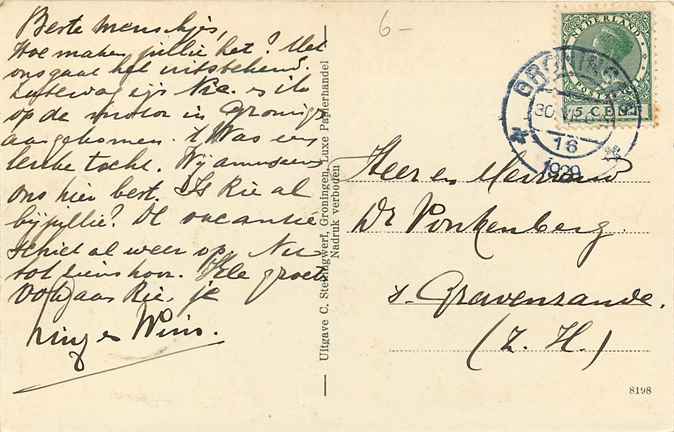 Beste menschjes,
Hoe maken jullie het? Met
ons gaat het uitstekend.
Zaterdag zijn Nic. en ik
op de motor in Groningen
aangekomen. 't Was een
leuke tocht. Wij amuseeren
ons hier best. Is Rie al
bij jullie? De vacantie
schiet al weer op. Nu
tot ziens hoor. Vele groeten
ook aan Rie, je
en Wim.
6-
Uitgave C. Stellingwerf, Groningen, Luxe Papierhandel
Nadruk verboden
NEDERLAND
5 CENT
GRONINGEN
30.V
16
1929
Heer en Mevrouw
Dr Vonkenberg.
's Gravenzande.
(Z. H.)
8198